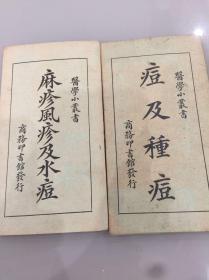 醫學小叢書
痘及種痘
商務印書館發行
醫學小叢書
麻疹風疹及水痘
商務印書館發行